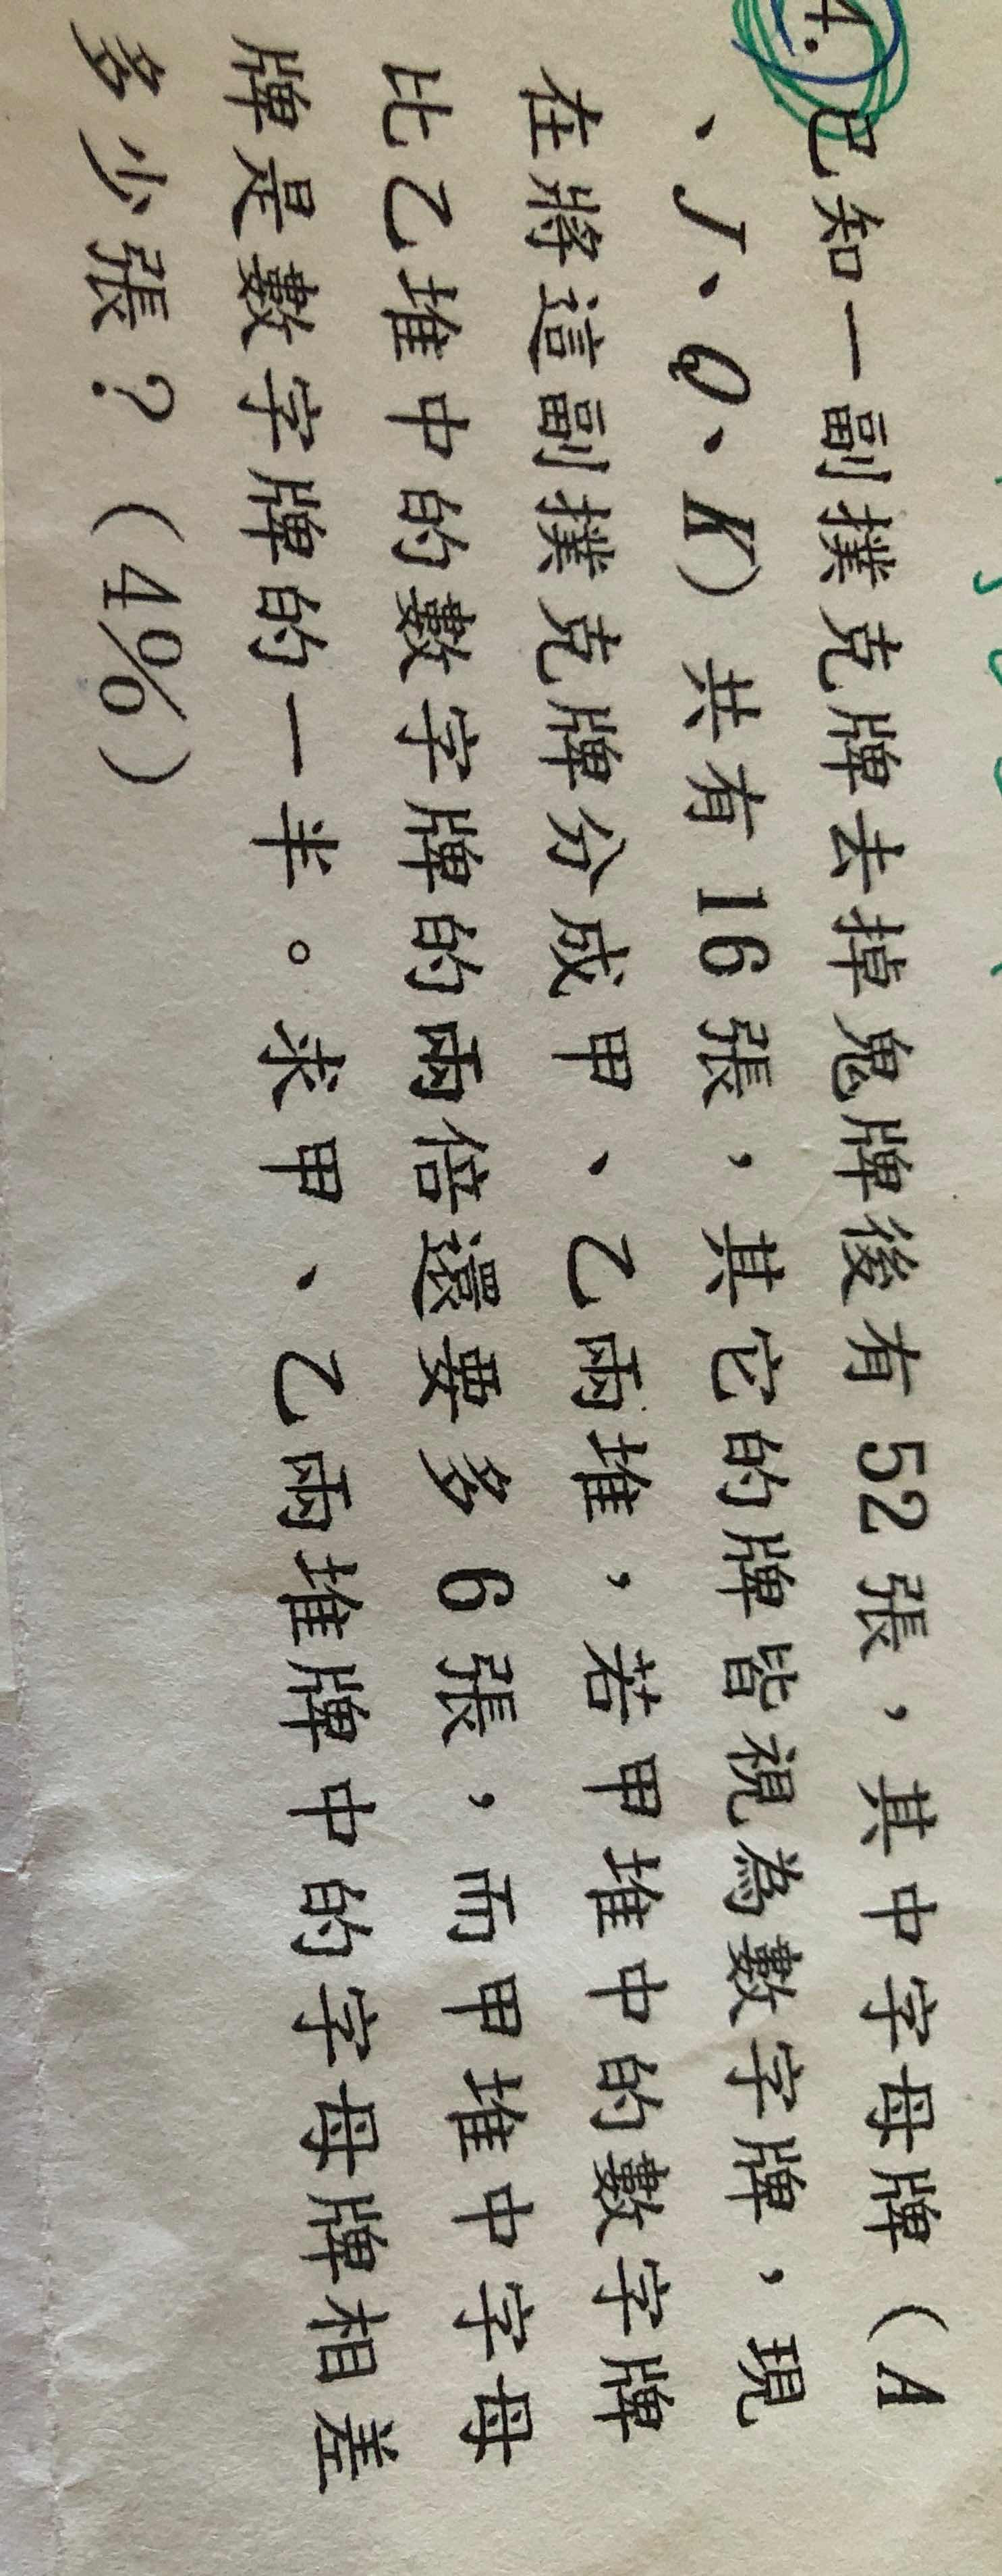 4. 已知一副撲克牌去掉鬼牌後有 52 張，其中字母牌（A
、J、Q、K）共有 16 張，其它的牌皆視為數字牌，現
在將這副撲克牌分成甲、乙兩堆，若甲堆中的數字牌
比乙堆中的數字牌的兩倍還要多 6 張，而甲堆中字母
牌是數字牌的一半。求甲、乙兩堆牌中的字母牌相差
多少張？（4%）